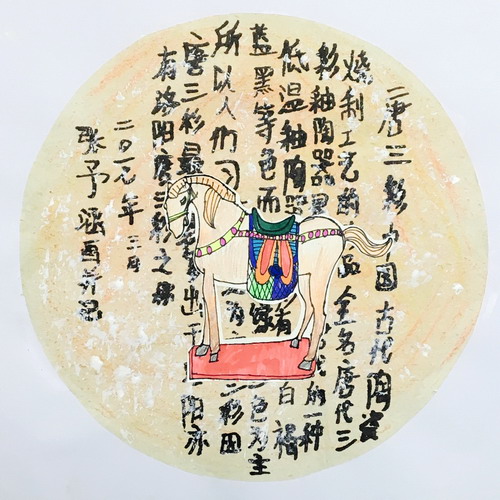 唐三彩中国古代陶瓷
烧制工艺的品全名唐代三
彩釉陶器是的一种
低温釉陶器白褐
蓝黑等色而色为主
所以人们习三彩因
唐三彩最出于阳亦
有洛阳唐三彩之称
二〇一九年三月
张予涵画并书